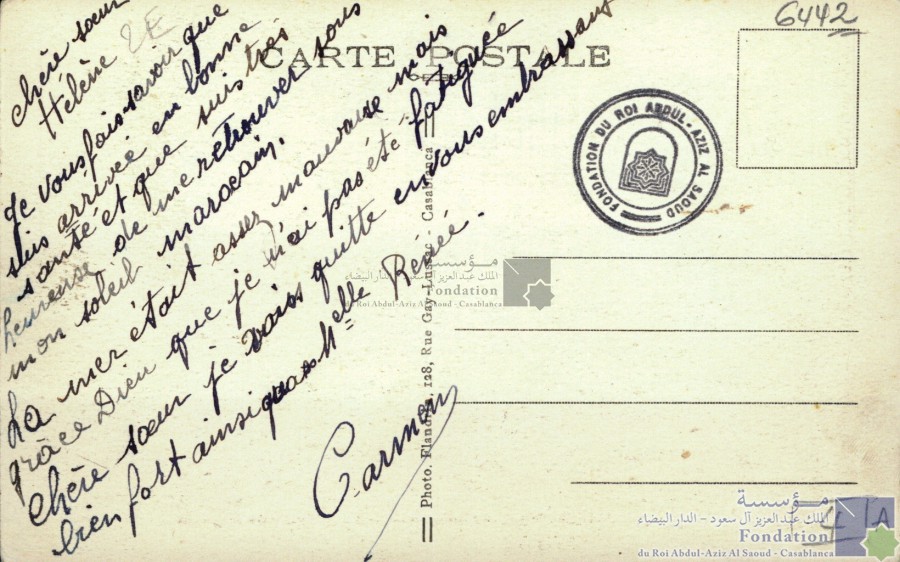 6442
CARTE POSTALE
chère sœur
Hélène
Je vous fais savoir que
suis arrivée en bonne
santé et que suis très
heureuse de me retrouver sous
mon soleil marocain.
La mer était assez mauvaise mais
grâce Dieu que je n'ai pas été fatiguée
chère sœur je vais quitte en vous embrassant
bien fort ainsi que Melle Renée.
Carmen
Photo. Flandrin, 128, Rue Gay-Lussac - Casablanca
FONDATION DU ROI ABDUL-AZIZ AL SAOUD
مؤسسة
الملك عبد العزيز آل سعود - الدار البيضاء
Fondation
du Roi Abdul-Aziz Al Saoud - Casablanca
مؤسسة
الملك عبد العزيز آل سعود - الدار البيضاء
Fondation
du Roi Abdul-Aziz Al Saoud - Casablanca